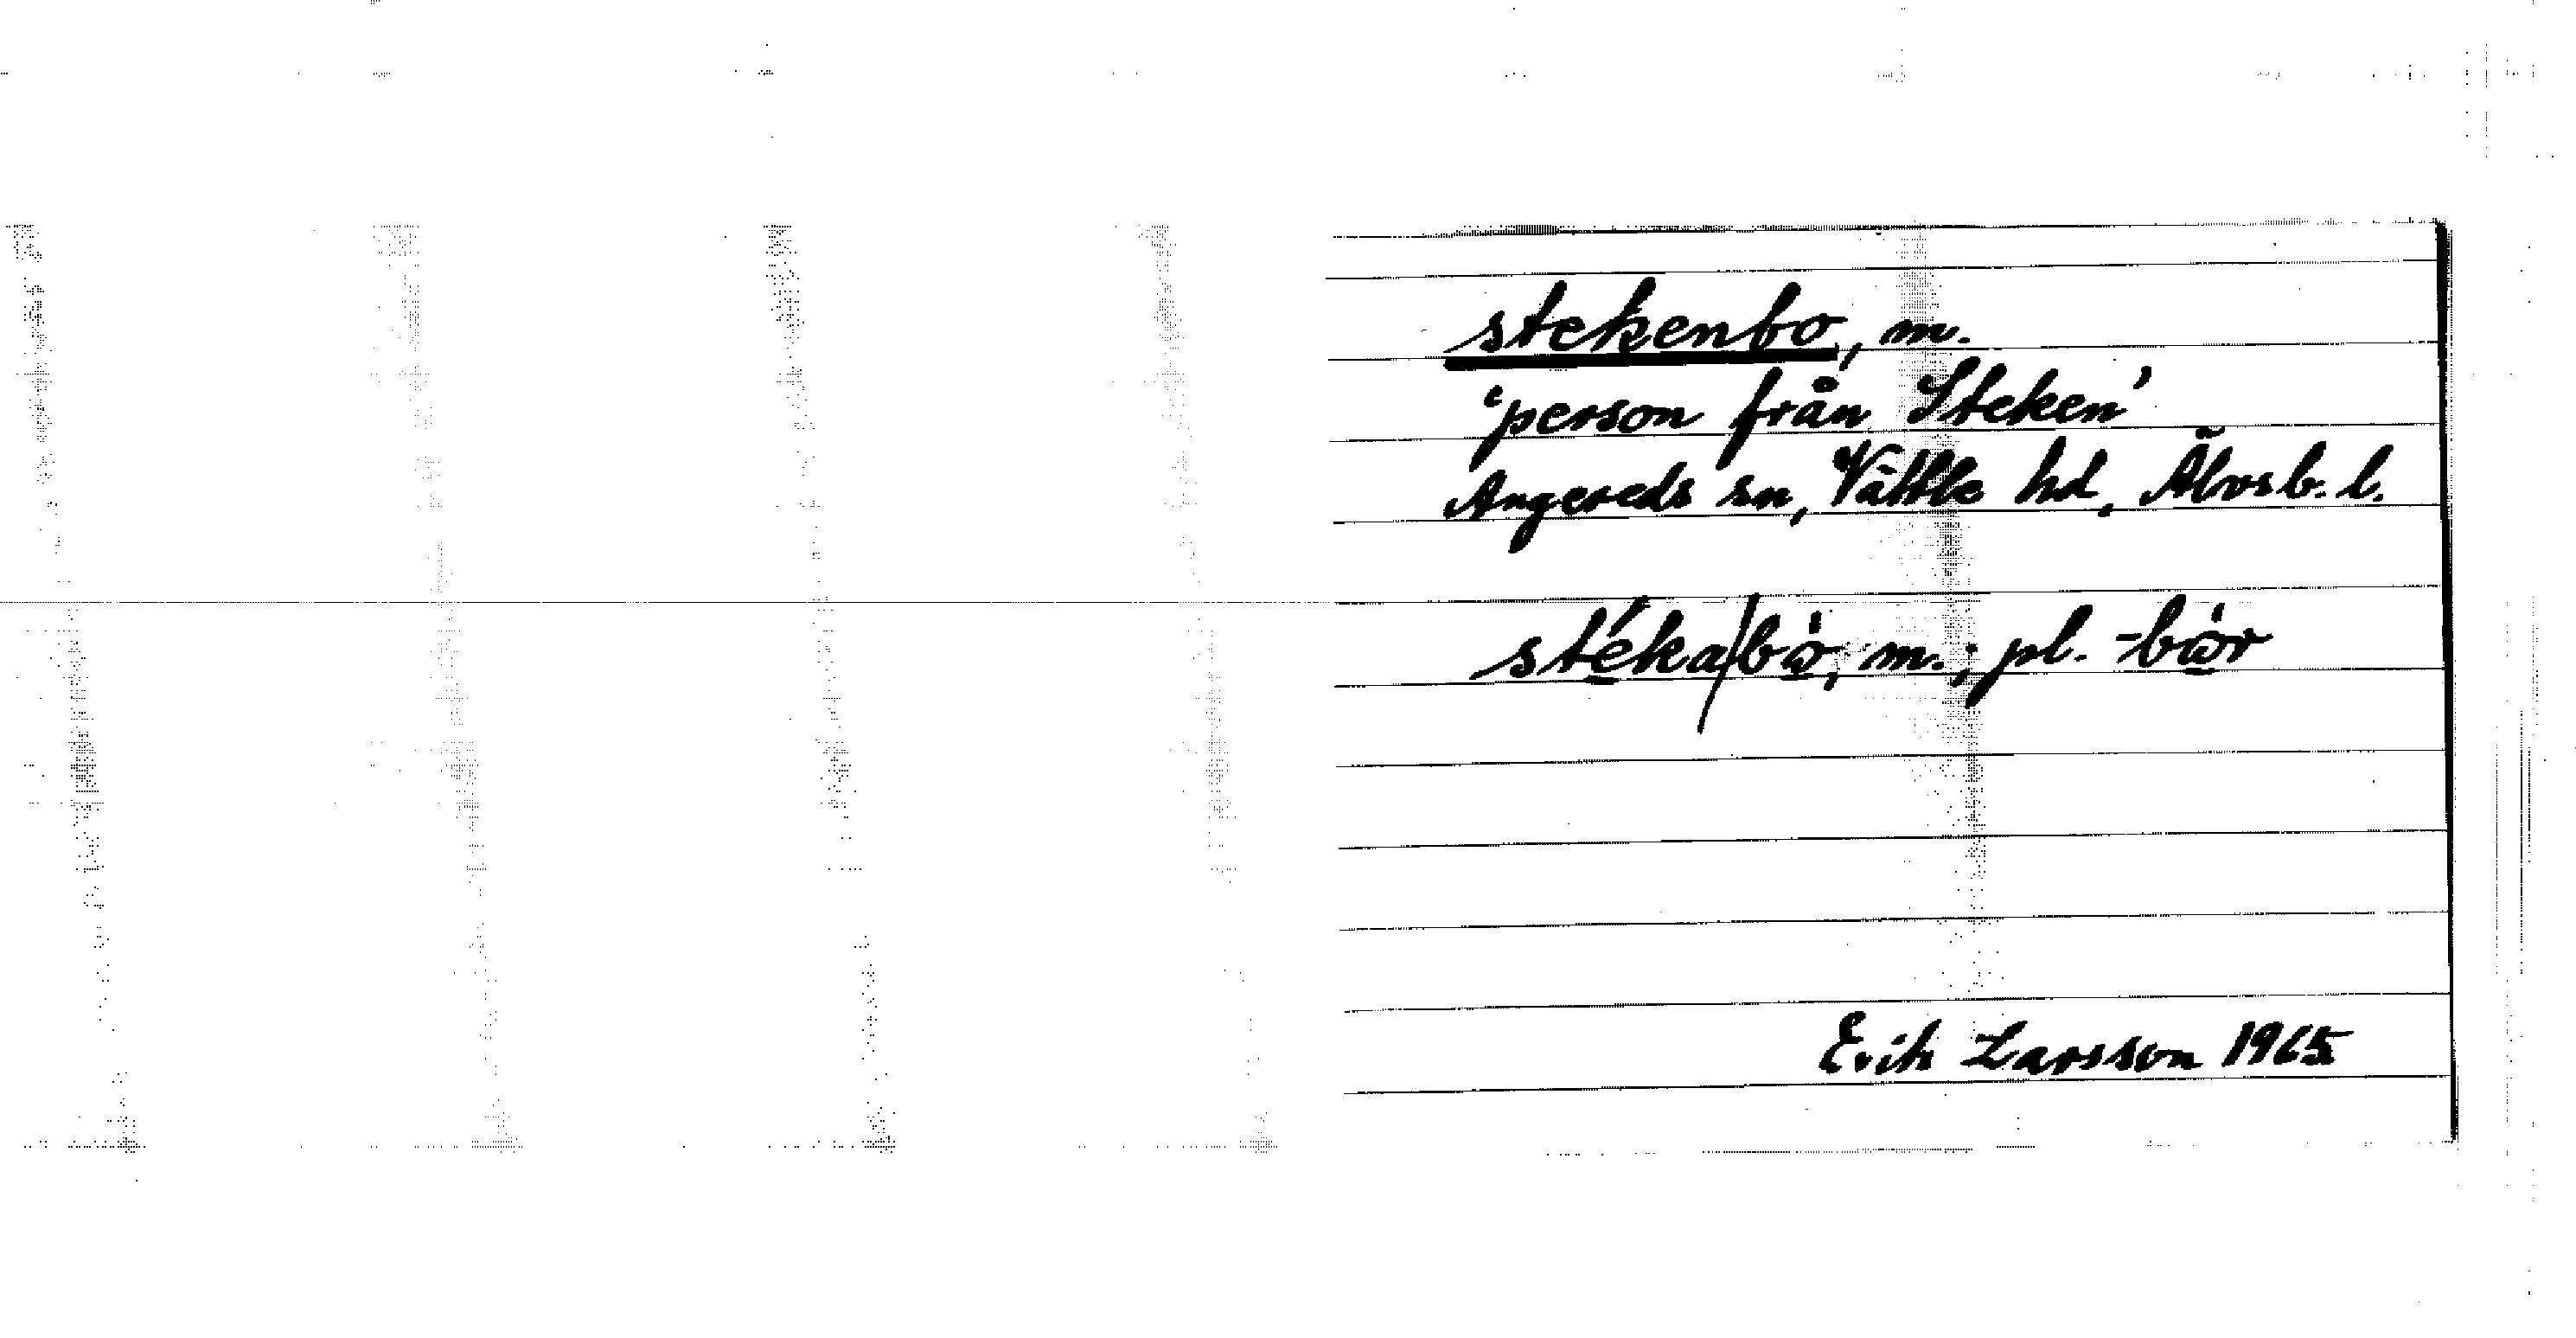 stekenbo, m.
'person från Steken'
Angereds sn, Vättle hd, Älvsb. l.
stéka/bò, m.; pl. -bòr
Erik Larsson 1965